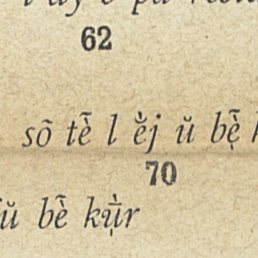 62
sõ tẽ̀ l ẽ̀j ŭ bẹ̃̀
70
ŭ bẽ̀ kụ̃̀r